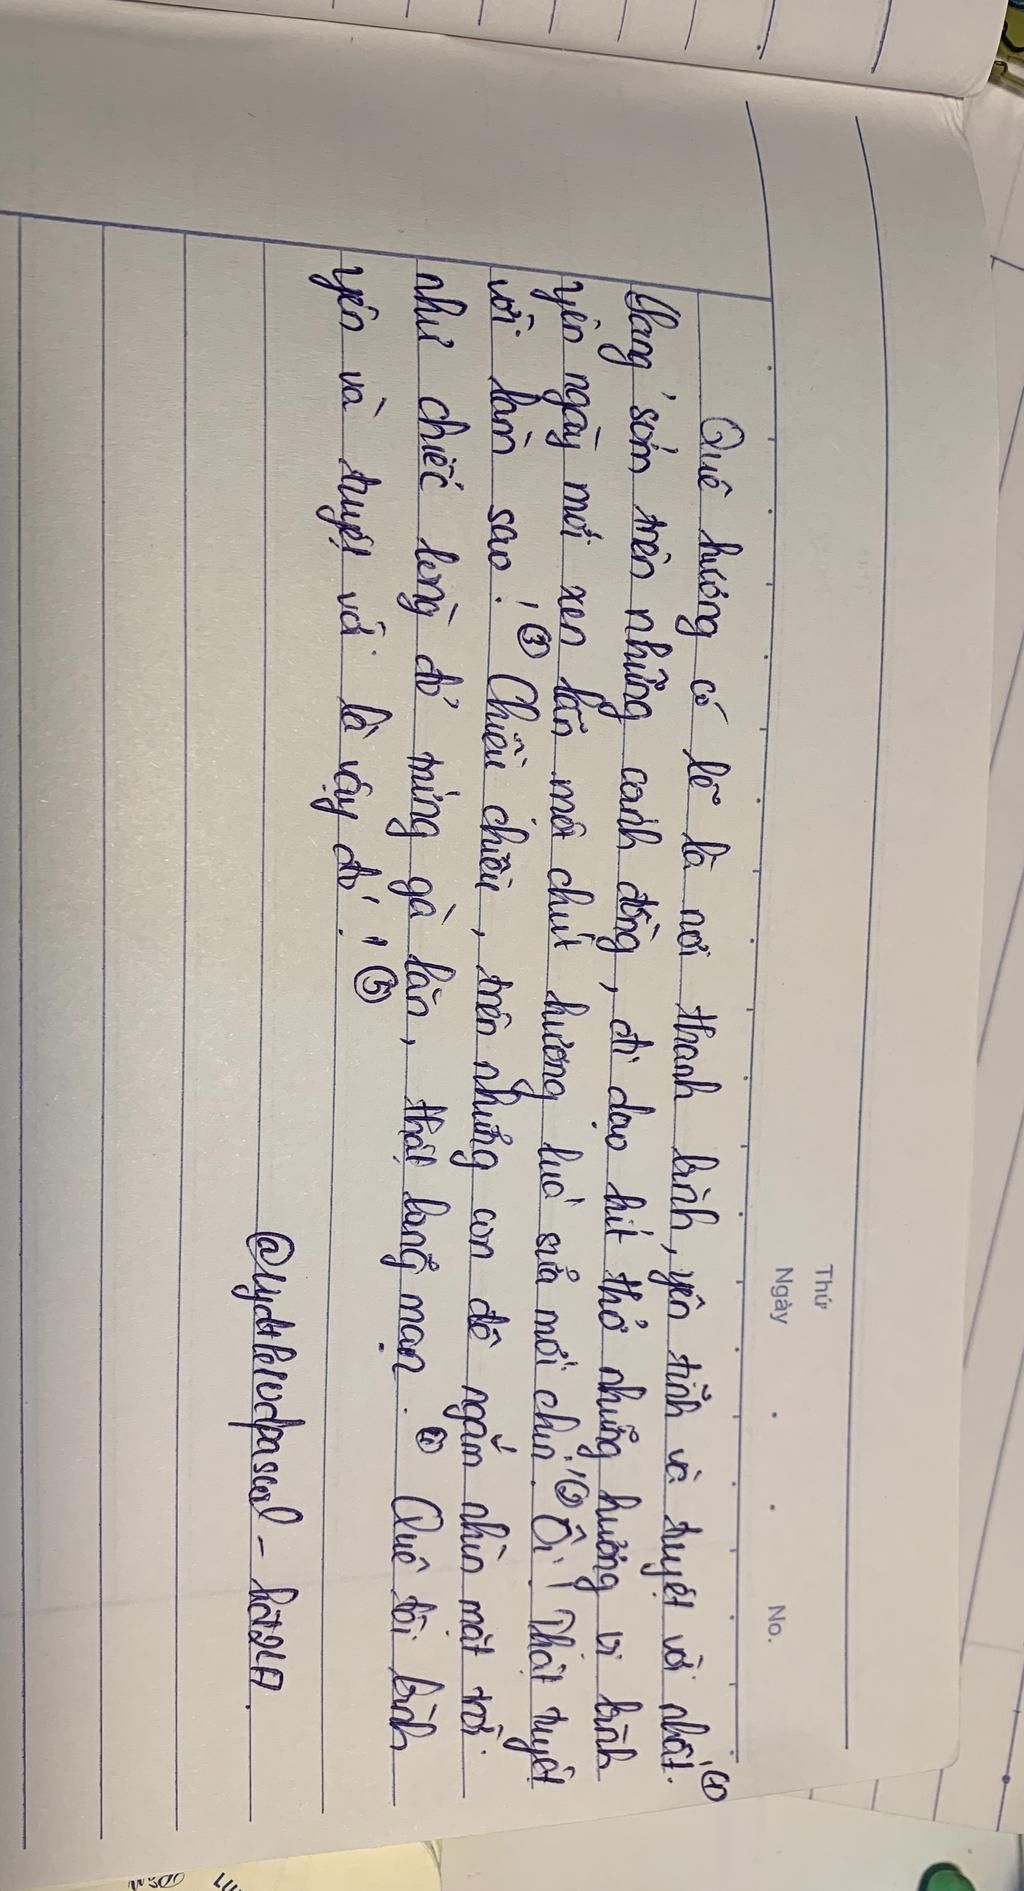 Thứ
Ngày . . No.
Quê hương có lẽ là nơi thanh bình, yên tĩnh và tuyệt vời nhất. (1)
Sáng sớm trên những cánh đồng, đi dạo hít thở những hương vị bình
yên ngày mới xen lẫn một chút hương lúa sữa mới chín. (2) Ôi! Thật tuyệt
vời làm sao! (3) Chiều chiều, trên những con đê ngắm nhìn mặt trời
như chiếc lòng đỏ trứng gà lặn, thật lãng mạn. (4) Quê tôi bình
yên và tuyệt vời là vậy đó! (5)